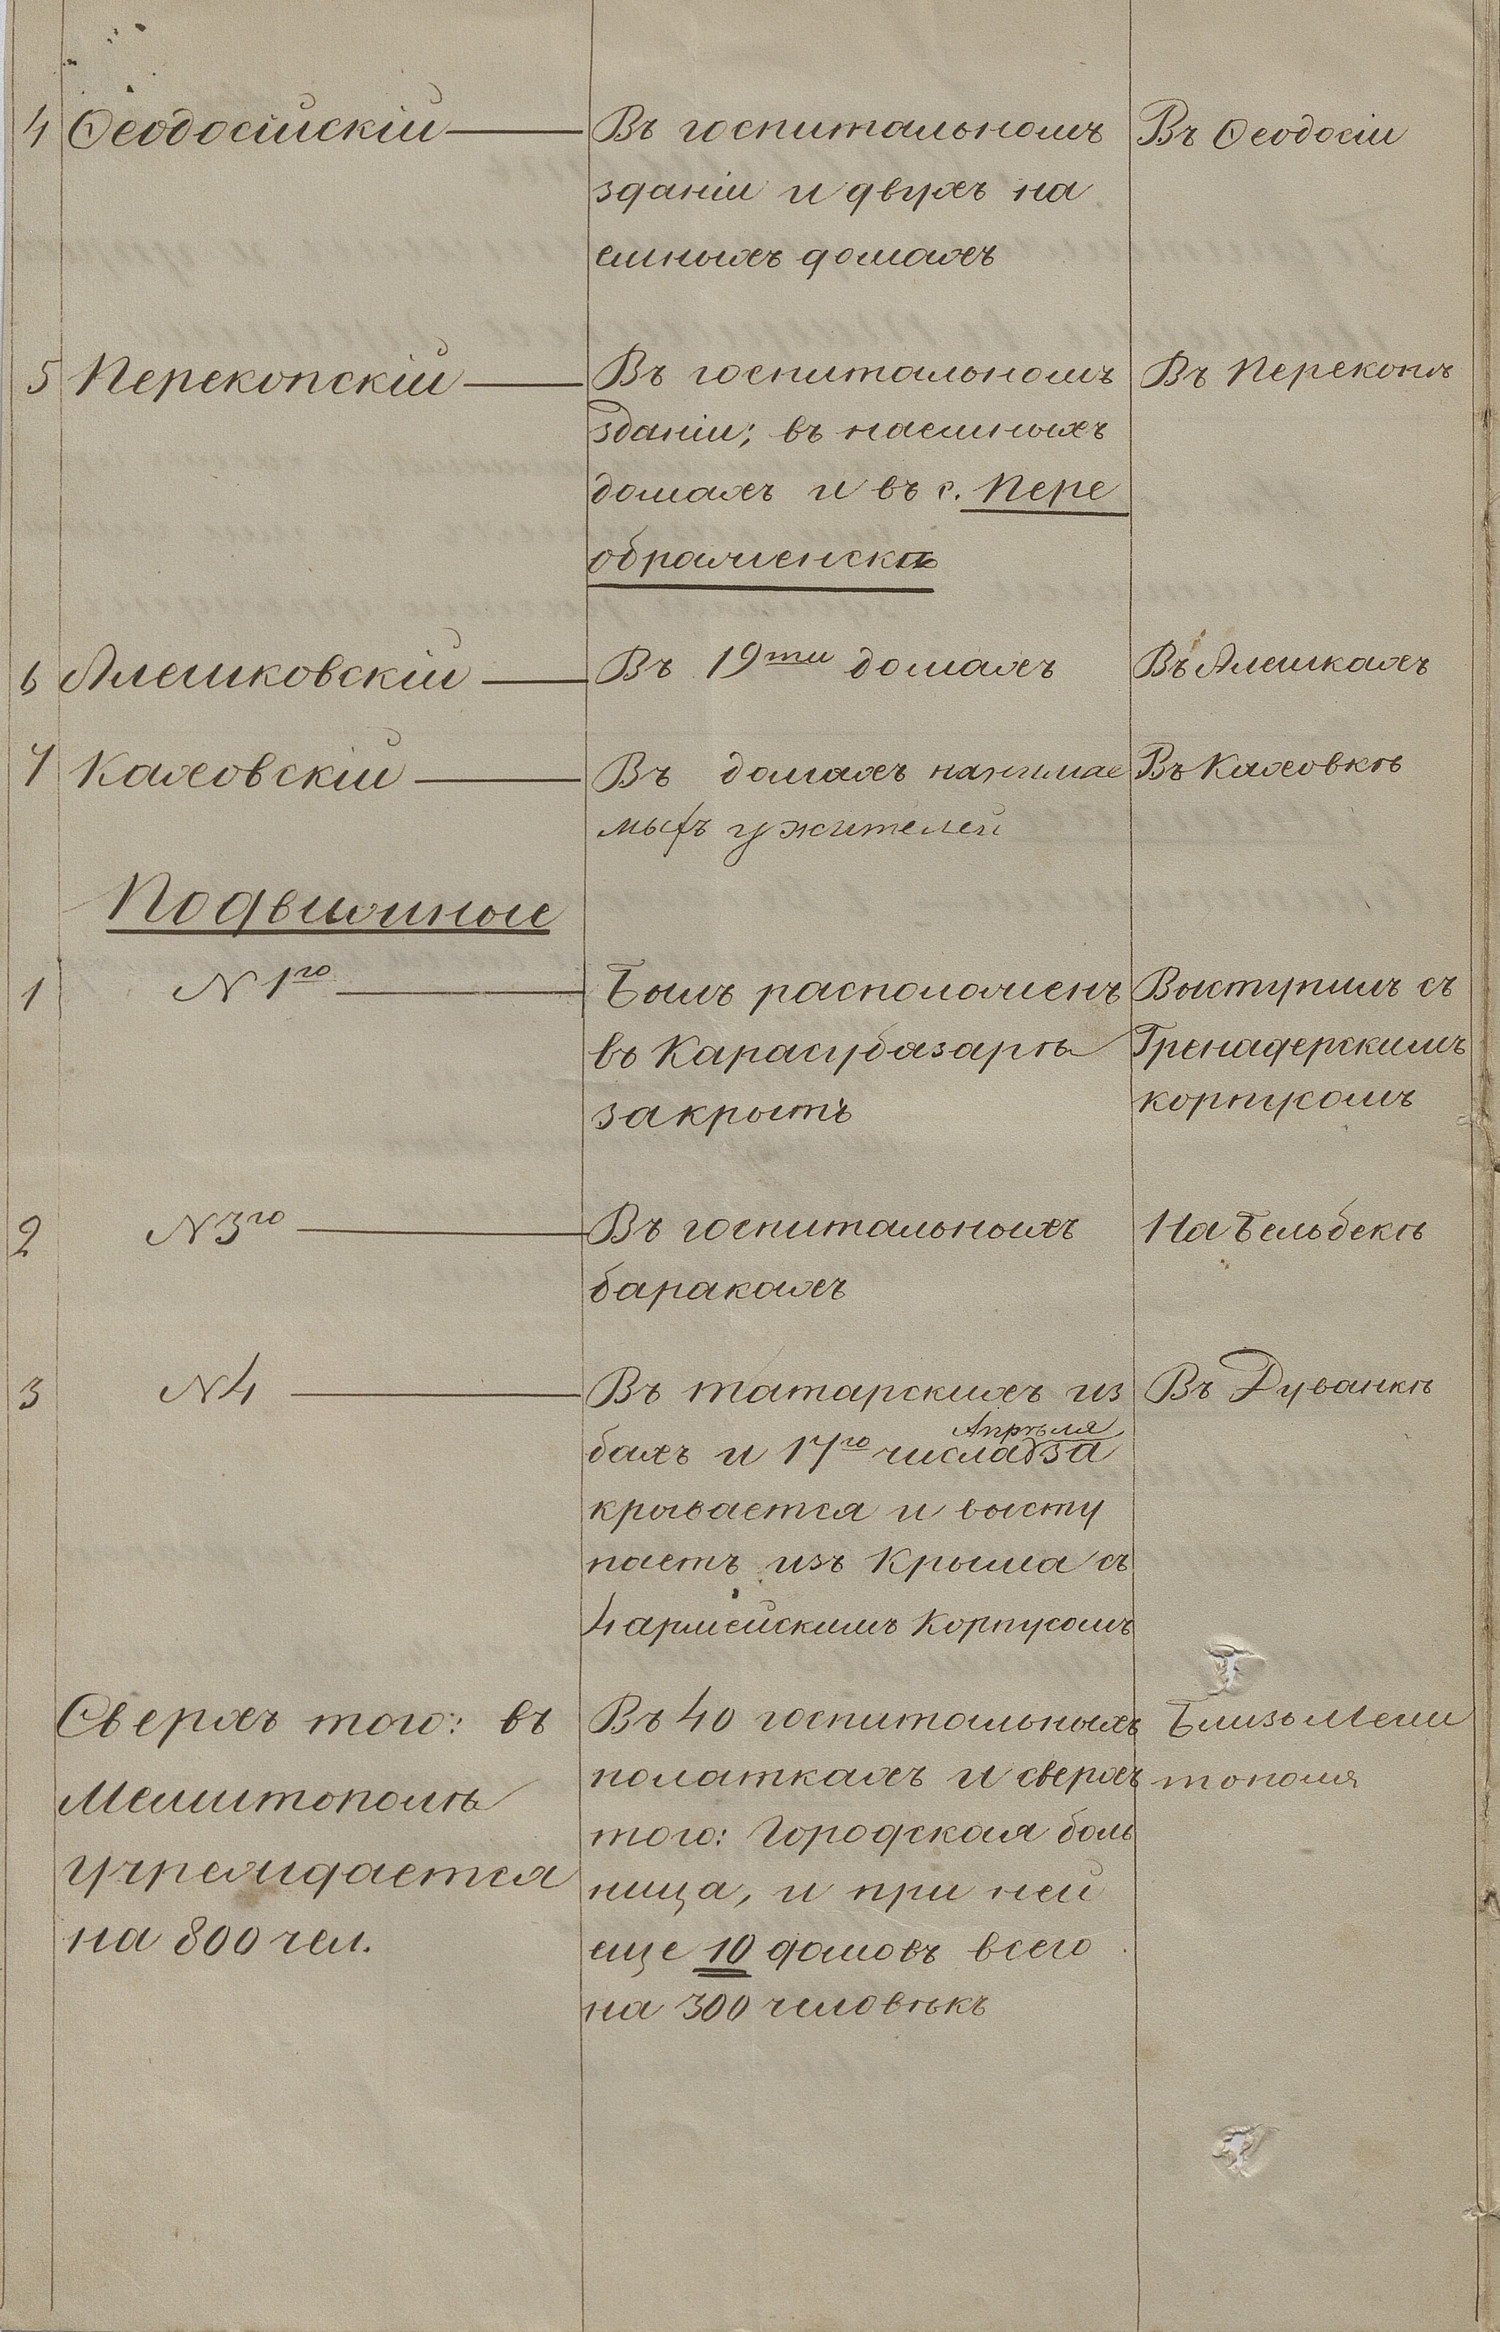 4 Ѳеодосійскій — Въ госпитальномъ Въ Ѳеодосіи
зданіи и двухъ на
емныхъ домахъ
5 Перекопскій — Въ госпитальномъ Въ Перекопѣ
зданіи; въ наемныхъ
домахъ и въ с. Пере
ображенскѣ
6 Алешковскій — Въ 19ти домахъ Въ Алешкахъ
7 Каховскій — Въ домахъ нанимае Въ Каховкѣ
мыхъ у жителей
Подвижные
1 N 1го — Былъ расположенъ Выступилъ съ
въ Карасубазарѣ Гренадерскимъ
закрытъ корпусомъ
2 N 3го — Въ госпитальныхъ На Бельбекѣ
баракахъ
3 N 4 — Въ татарскихъ из Въ Дуванкѣ
Апрѣля
бахъ и 17го числа за
крывается и высту
паетъ изъ Крыма съ
4 армейскимъ Корпусомъ
Сверхъ того: въ Въ 40 госпитальныхъ Близь Мели
Мелитополѣ палаткахъ и сверхъ тополя
учреждается того: Городская боль
на 800 чел. ница, и при ней
еще 10 домовъ всего
на 300 человѣкъ